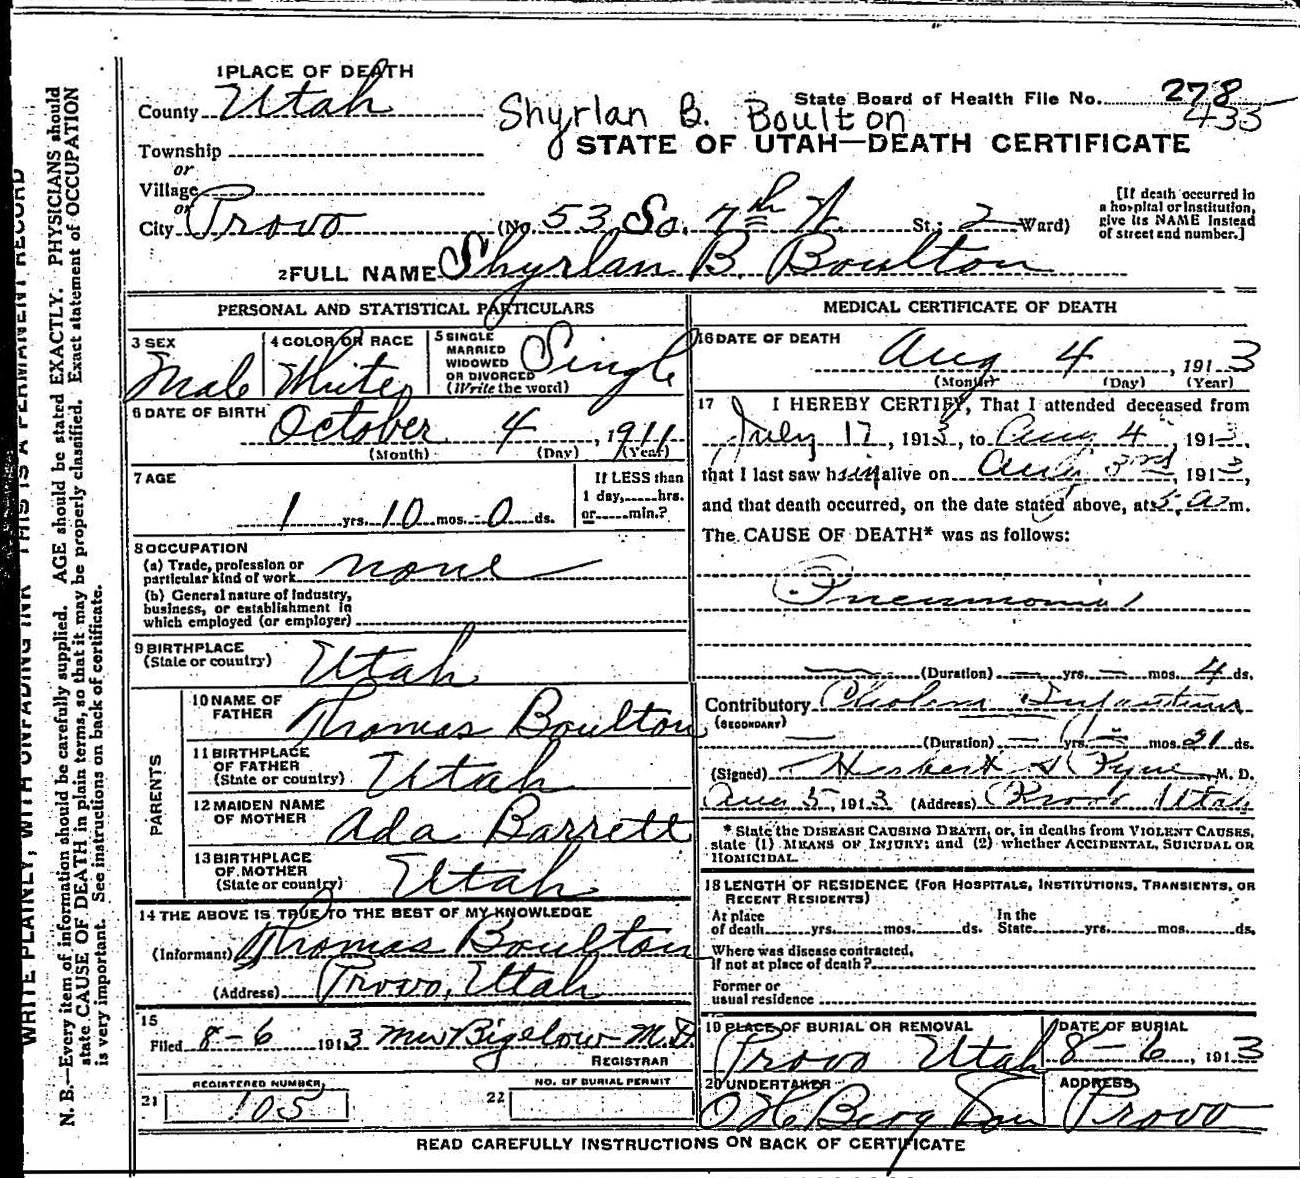 1 PLACE OF DEATH
County Utah
Shyrlan B. Boulton
State Board of Health File No. 278
433
STATE OF UTAH—DEATH CERTIFICATE
Township
or
Village
or
City Provo (No. 53 So. 7th W. St.; 2 Ward)
[If death occurred in
a hospital or institution,
give its NAME instead
of street and number.]
2 FULL NAME Shyrlan B. Boulton
PERSONAL AND STATISTICAL PARTICULARS
3 SEX
Male
4 COLOR OR RACE
White
5 SINGLE
MARRIED
WIDOWED
OR DIVORCED
(Write the word)
Single
6 DATE OF BIRTH
October 4, 1911
(Month) (Day) (Year)
7 AGE
1 yrs. 10 mos. 0 ds.
If LESS than
1 day, hrs.
or min.?
8 OCCUPATION
(a) Trade, profession or
particular kind of work none
(b) General nature of Industry,
business, or establishment in
which employed (or employer)
9 BIRTHPLACE
(State or country) Utah
PARENTS
10 NAME OF
FATHER Thomas Boulton
11 BIRTHPLACE
OF FATHER
(State or country) Utah
12 MAIDEN NAME
OF MOTHER Ada Barrett
13 BIRTHPLACE
OF MOTHER
(State or country) Utah
14 THE ABOVE IS TRUE TO THE BEST OF MY KNOWLEDGE
(Informant) Thomas Boulton
(Address) Provo, Utah
15
Filed 8-6 1913 MW Bigelow M.D.
REGISTRAR
REGISTERED NUMBER
21 105
NO. OF BURIAL PERMIT
22
MEDICAL CERTIFICATE OF DEATH
16 DATE OF DEATH
Aug 4, 1913
(Month) (Day) (Year)
17 I HEREBY CERTIFY, That I attended deceased from
July 17, 1913, to Aug 4, 1913,
that I last saw him alive on Aug 3rd, 1913,
and that death occurred, on the date stated above, at 5 a m.
The CAUSE OF DEATH* was as follows:
Pneumonia
(Duration) yrs. mos. 4 ds.
Contributory Cholera Infantum
(SECONDARY)
(Duration) yrs. mos. 21 ds.
(Signed) Herbert S Pyne, M. D.
Aug 5, 1913 (Address) Provo Utah
* State the DISEASE CAUSING DEATH, or, in deaths from VIOLENT CAUSES,
state (1) MEANS OF INJURY; and (2) whether ACCIDENTAL, SUICIDAL OR
HOMICIDAL.
18 LENGTH OF RESIDENCE (FOR HOSPITALS, INSTITUTIONS, TRANSIENTS, OR
RECENT RESIDENTS)
At place In the
of death yrs. mos. ds. State yrs. mos. ds.
Where was disease contracted,
if not at place of death?
Former or
usual residence
19 PLACE OF BURIAL OR REMOVAL
Provo Utah
DATE OF BURIAL
8-6, 1913
20 UNDERTAKER
O H Berg & Son
ADDRESS
Provo
READ CAREFULLY INSTRUCTIONS ON BACK OF CERTIFICATE
WRITE PLAINLY, WITH UNFADING INK—THIS IS A PERMANENT RECORD
N. B.—Every item of information should be carefully supplied. AGE should be stated EXACTLY. PHYSICIANS should
state CAUSE OF DEATH in plain terms, so that it may be properly classified. Exact statement of OCCUPATION
is very important. See instructions on back of certificate.